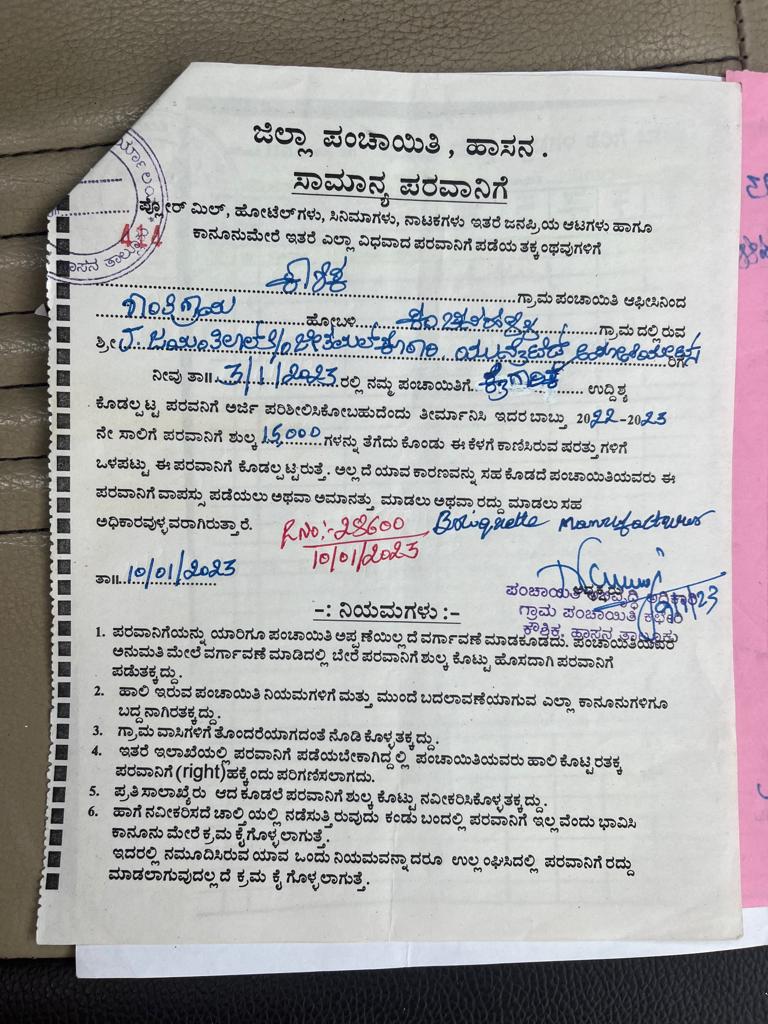 ಜಿಲ್ಲಾ ಪಂಚಾಯಿತಿ, ಹಾಸನ.
ಸಾಮಾನ್ಯ ಪರವಾನಿಗೆ
414
ಹಾಸನ ತಾಲ್ಲೂಕು
ಪ್ಲೋರ್ ಮಿಲ್, ಹೋಟೆಲ್‌ಗಳು, ಸಿನಿಮಾಗಳು, ನಾಟಕಗಳು ಇತರೆ ಜನಪ್ರಿಯ ಆಟಗಳು ಹಾಗೂ
ಕಾನೂನುಮೇರೆ ಇತರೆ ಎಲ್ಲಾ ವಿಧವಾದ ಪರವಾನಿಗೆ ಪಡೆಯ ತಕ್ಕಂಥವುಗಳಿಗೆ
ಕೌಶಿಕ ಗ್ರಾಮ ಪಂಚಾಯಿತಿ ಆಫೀಸಿನಿಂದ
ಶಾಂತಿಗ್ರಾಮ ಹೋಬಳಿ ಗ್ರಾಮದಲ್ಲಿರುವ
ಶ್ರೀ J. ರಿಗೆ
ನೀವು ತಾ॥ 3/1/2023 ರಲ್ಲಿ ನಮ್ಮ ಪಂಚಾಯಿತಿಗೆ ಕೈಗಾರಿಕೆ ಉದ್ದಿಶ್ಯ
ಕೊಡಲ್ಪಟ್ಟ ಪರವನಿಗೆ ಅರ್ಜಿ ಪರಿಶೀಲಿಸಿಕೋಬಹುದೆಂದು ತೀರ್ಮಾನಿಸಿ ಇದರ ಬಾಬ್ತು 2022-2023
ನೇ ಸಾಲಿಗೆ ಪರವಾನಿಗೆ ಶುಲ್ಕ 15,000 ಗಳನ್ನು ತೆಗೆದು ಕೊಂಡು ಈ ಕೆಳಗೆ ಕಾಣಿಸಿರುವ ಷರತ್ತುಗಳಿಗೆ
ಒಳಪಟ್ಟು ಈ ಪರವಾನಿಗೆ ಕೊಡಲ್ಪಟ್ಟಿರುತ್ತೆ. ಅಲ್ಲದೆ ಯಾವ ಕಾರಣವನ್ನು ಸಹ ಕೊಡದೆ ಪಂಚಾಯಿತಿಯವರು ಈ
ಪರವಾನಿಗೆ ವಾಪಸ್ಸು ಪಡೆಯಲು ಅಥವಾ ಅಮಾನತ್ತು ಮಾಡಲು ಅಥವಾ ರದ್ದು ಮಾಡಲು ಸಹ
ಅಧಿಕಾರವುಳ್ಳವರಾಗಿರುತ್ತಾರೆ. R.No:-28600 Briquette Manufacturer
10/01/2023
ತಾ॥ 10/01/2023
ಪಂಚಾಯಿತಿ ಅಭಿವೃದ್ಧಿ ಅಧಿಕಾರಿ
ಗ್ರಾಮ ಪಂಚಾಯಿತಿ ಕಛೇರಿ
ಕೌಶಿಕ, ಹಾಸನ ತಾಲ್ಲೂಕು
-: ನಿಯಮಗಳು :-
1. ಪರವಾನಿಗೆಯನ್ನು ಯಾರಿಗೂ ಪಂಚಾಯಿತಿ ಅಪ್ಪಣೆಯಿಲ್ಲದೆ ವರ್ಗಾವಣೆ ಮಾಡಕೂಡದು. ಪಂಚಾಯಿತಿಯವರ
ಅನುಮತಿ ಮೇಲೆ ವರ್ಗಾವಣೆ ಮಾಡಿದಲ್ಲಿ ಬೇರೆ ಪರವಾನಿಗೆ ಶುಲ್ಕ ಕೊಟ್ಟು ಹೊಸದಾಗಿ ಪರವಾನಿಗೆ
ಪಡುತಕ್ಕದ್ದು.
2. ಹಾಲಿ ಇರುವ ಪಂಚಾಯಿತಿ ನಿಯಮಗಳಿಗೆ ಮತ್ತು ಮುಂದೆ ಬದಲಾವಣೆಯಾಗುವ ಎಲ್ಲಾ ಕಾನೂನುಗಳಿಗೂ
ಬದ್ದನಾಗಿರತಕ್ಕದ್ದು.
3. ಗ್ರಾಮ ವಾಸಿಗಳಿಗೆ ತೊಂದರೆಯಾಗದಂತೆ ನೊಡಿ ಕೊಳ್ಳತಕ್ಕದ್ದು.
4. ಇತರೆ ಇಲಾಖೆಯಲ್ಲಿ ಪರವಾನಿಗೆ ಪಡೆಯಬೇಕಾಗಿದ್ದಲ್ಲಿ ಪಂಚಾಯಿತಿಯವರು ಹಾಲಿ ಕೊಟ್ಟಿರತಕ್ಕ
ಪರವಾನಿಗೆ (right) ಹಕ್ಕೆಂದು ಪರಿಗಣಿಸಲಾಗದು.
5. ಪ್ರತಿ ಸಾಲಾಖೈರು ಆದ ಕೂಡಲೆ ಪರವಾನಿಗೆ ಶುಲ್ಕ ಕೊಟ್ಟು ನವೀಕರಿಸಿಕೊಳ್ಳತಕ್ಕದ್ದು.
6. ಹಾಗೆ ನವೀಕರಿಸದೆ ಚಾಲ್ತಿಯಲ್ಲಿ ನಡೆಸುತ್ತಿರುವುದು ಕಂಡು ಬಂದಲ್ಲಿ ಪರವಾನಿಗೆ ಇಲ್ಲವೆಂದು ಭಾವಿಸಿ
ಕಾನೂನು ಮೇರೆ ಕ್ರಮ ಕೈಗೊಳ್ಳಲಾಗುತ್ತೆ.
ಇದರಲ್ಲಿ ನಮೂದಿಸಿರುವ ಯಾವ ಒಂದು ನಿಯಮವನ್ನಾದರೂ ಉಲ್ಲಂಘಿಸಿದಲ್ಲಿ ಪರವಾನಿಗೆ ರದ್ದು
ಮಾಡಲಾಗುವುದಲ್ಲದೆ ಕ್ರಮ ಕೈಗೊಳ್ಳಲಾಗುತ್ತೆ.